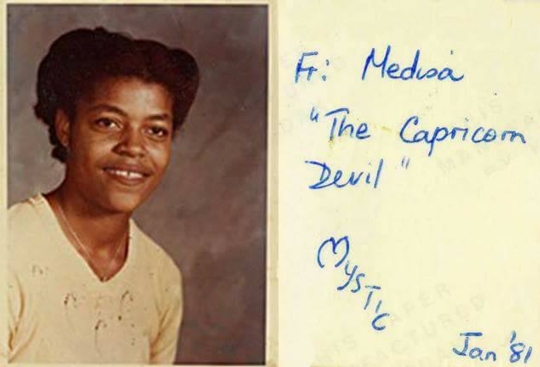 Fr: Medusa
"The Capricorn
Devil"
Mystic
Jan '81